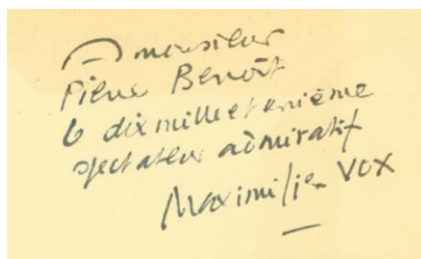 A monsieur
Pierre Benoit
le dix mille et unième
spectateur admiratif
Maximilien VOX